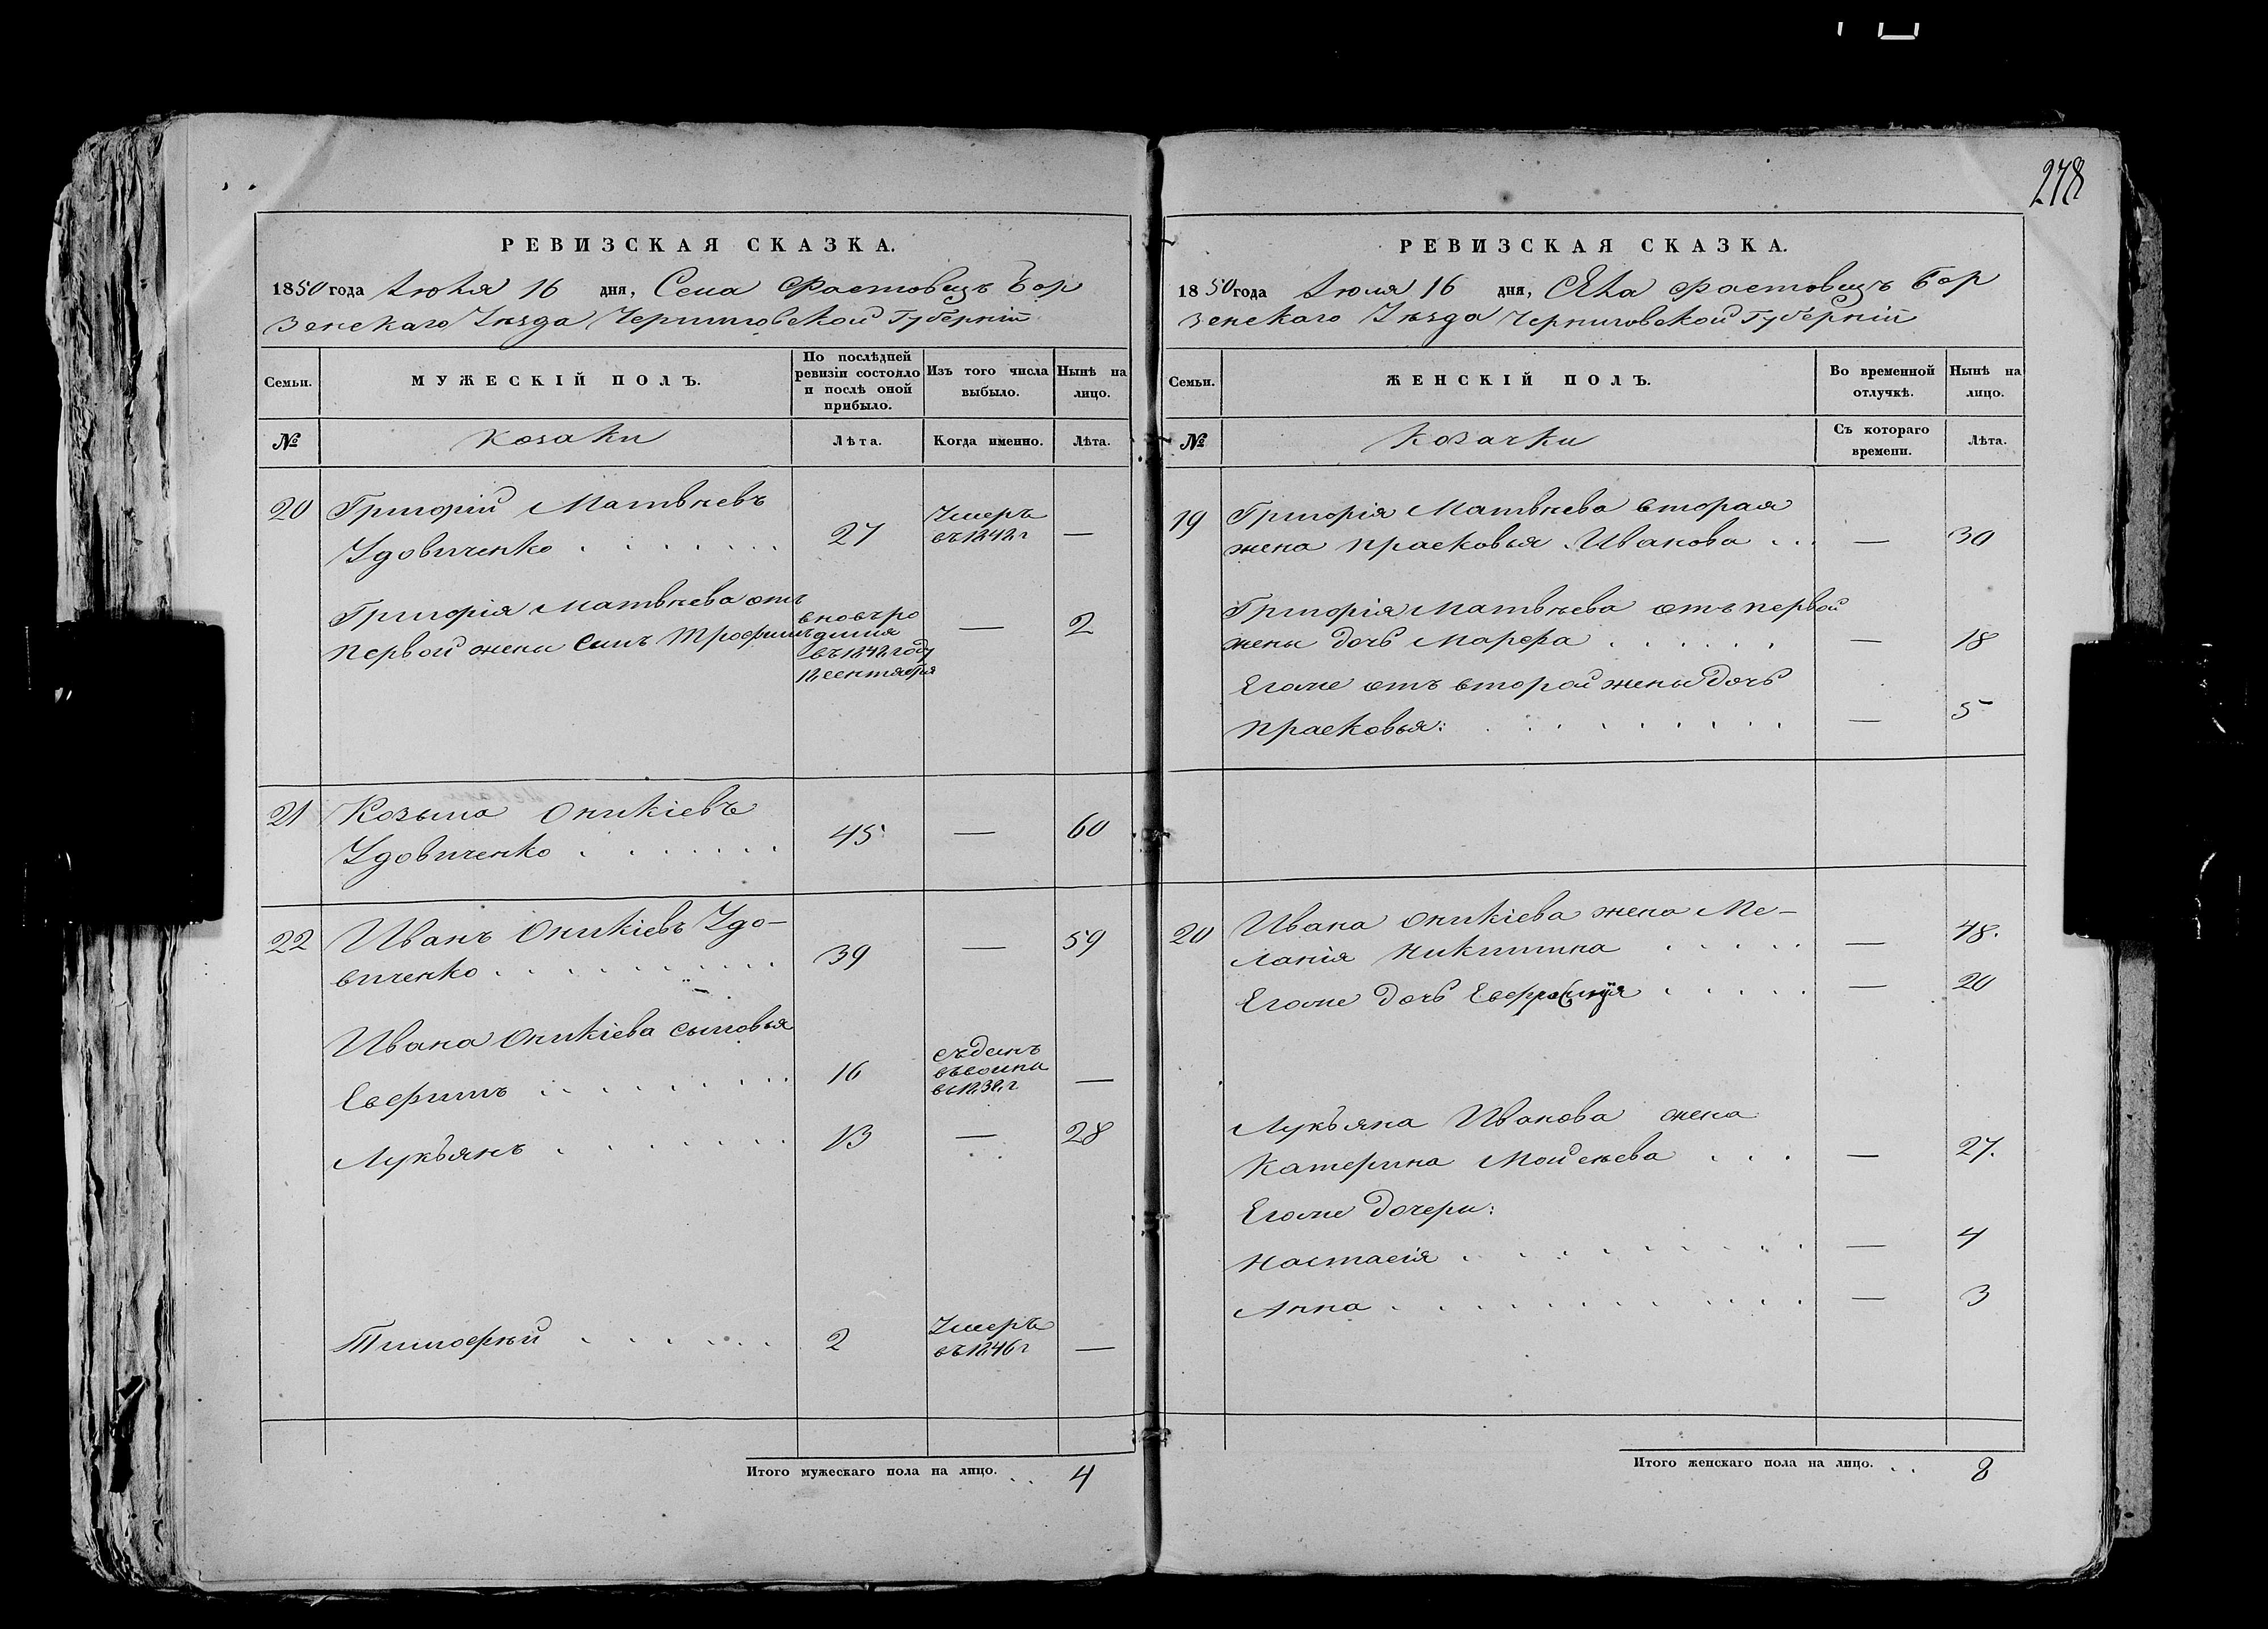 278
РЕВИЗСКАЯ СКАЗКА.
1850 года Июля 16 дня, Села Фастовецъ Бор
зенскаго Уѣзда Черниговской Губерніи
Семьи.
МУЖЕСКІЙ ПОЛЪ.
По послѣдней ревизіи состояло и послѣ оной прибыло.
Изъ того числа выбыло.
Нынѣ на лицо.
№
Козаки
Лѣта.
Когда именно.
Лѣта.
20 Григорій Матвѣевъ
Удовиченко . . . . . . . 27 Умеръ въ 1842 г —
Григорія Матвѣева отъ
первой жены сынъ Трофимъ
вновь ро
въ 1842 году
12 сентября
— 2
21 Козьма Оникіевъ
Удовиченко . . . . . . . 45 — 60
22 Иванъ Оникіевъ Удо-
виченко . . . . . . . . . . 39 — 59
Ивана Оникіева сыновья
Евфимъ . . . . . . . . 16 въ 1838 г —
Лукьянъ . . . . . . . 13 — 28
Тимофѣй . . . . . . 2 Умеръ въ 1846 г —
Итого мужескаго пола на лицо. . . 4
РЕВИЗСКАЯ СКАЗКА.
1850 года Июля 16 дня, Села Фастовецъ Бор
зенскаго Уѣзда Черниговской Губерніи
Семьи.
ЖЕНСКІЙ ПОЛЪ.
Во временной отлучкѣ.
Нынѣ на лицо.
№
Козачки
Съ котораго времени.
Лѣта.
19 Григорія Матвѣева вторая
жена Прасковья Иванова . . . — 30
Григорія Матвѣева отъ первой
жены дочь Марфа . . . . . . — 18
Егоже отъ второй жены дочь
Прасковья: . . . . . . . . . — 5
20 Ивана Оникіева жена Ме-
ланія Никитина . . . . . — 48.
Егоже дочь . . . . . — 20
Лукьяна Иванова жена
Катерина Мойсѣева . . . — 27.
Егоже дочери:
Настасія . . . . . . . . . . — 4
Анна . . . . . . . . . . . . — 3
Итого женскаго пола на лицо. . . 8